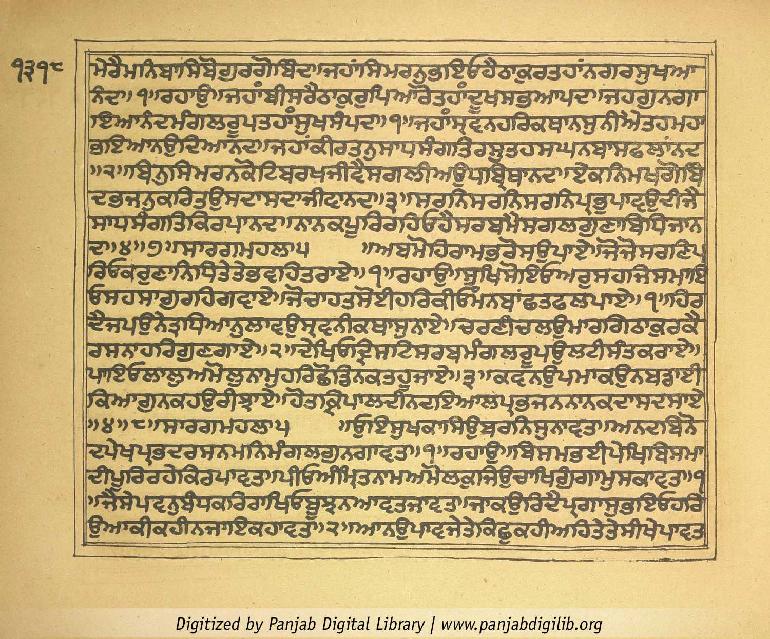 ੧੩੧੮
ਮੇਰੈਮਾਨਿਬਾਸਿਬੋਗੁਰਗੋਬਿੰਦ॥ਜਹਾਂਸਿਮਰਨੁਭਇਓਹੈਠਾਕੁਰਤਹਾਂਨਗਰਸੁਖਆ
ਨੰਦ॥੧॥ਰਹਾਉ॥ਜਹਾਂਬੀਸਰੈਠਾਕੁਰੁਪਿਆਰੋਤਹਾਂਦੂਖਸਭਆਪਦ॥ਜਹਗੁਨਗਾ
ਇਆਨੰਦਮੰਗਲਰੂਪਤਹਾਂਸੁਖਸੰਪਦ॥੧॥ਜਹਾਂਸ੍ਰਵਨਹਰਿਕਥਾਨਸੁਨੀਐਤਹਮਹਾ
ਭਇਆਨਉਦਿਆਨਦ॥ਜਹਾਂਕੀਰਤਨੁਸਾਧਸੰਗਤਿਰਸੁਤਹਸਘਨਬਾਸਫਲਾਂਨਦ
॥੨॥ਬਿਨੁਸਿਮਰਨਕੋਟਿਬਰਖਜੀਵੈਸਗਲੀਅਉਧਬ੍ਰਿਥਾਨਦ॥ਏਕਨਿਮਖਗੋਬਿੰ
ਦਭਜਨੁਕਰਿਤਉਸਦਾਸਦਾਜੀਵਾਨਦ॥੩॥ਸਰਨਿਸਰਨਿਸਰਨਿਪ੍ਰਭੁਪਾਵਉਦੀਜੈ
ਸਾਧਸੰਗਤਿਕਿਰਪਾਨਦ॥ਨਾਨਕਪੂਰਿਰਹਿਓਹੈਸਰਬਮੈਸਗਲਗੁਣਾਬਿਧਿਜਾਨ
ਦ॥੪॥੭॥ਸਾਰਗਮਹਲਾ੫ ॥ਅਬਮੋਹਿਰਾਮਭਰੋਸਉਪਾਏ॥ਜੋਜੋਸਰਣਿਪ
ਰਿਓਕਰੁਣਾਨਿਧਿਤੇਤੇਭਵਹਿਤਰਾਏ॥੧॥ਰਹਾਉ॥ਸੁਖਿਸੋਇਓਅਰੁਸਹਜਿਸਮਾਇ
ਓਸਹਸਾਗੁਰਹਿਗਵਾਏ॥ਜੋਚਾਹਤਸੋਈਹਰਿਕੀਓਮਨਬਾਂਛਤਫਲਪਾਏ॥੧॥ਹਿਰ
ਦੈਜਪਉਨੇਤ੍ਰਧਿਆਨੁਲਾਵਉਸ੍ਰਵਨੀਕਥਾਸੁਨਾਏ॥ਚਰਣੀਚਲਉਮਾਰਗਿਠਾਕੁਰਕੈ
ਰਸਨਾਹਰਿਗੁਣਗਾਏ॥੨॥ਦੇਖਿਓਦ੍ਰਿਸਟਿਸਰਬਮੰਗਲਰੂਪਉਲਟੀਸੰਤਕਰਾਏ॥
ਪਾਇਓਲਾਲੁਅਮੋਲੁਨਾਮੁਹਰਿਛੋਡਿਨਕਤਹੂਜਾਏ॥੩॥ਕਵਨਉਪਮਾਕਉਨਬਡਾਈ
ਕਿਆਗੁਨਕਹਉਰੀਝਾਏ॥ਹੋਤਕ੍ਰਿਪਾਲਦੀਨਦਇਆਲਪ੍ਰਭਜਨਨਾਨਕਦਾਸਦਸਾਏ
॥੪॥੮॥ਸਾਰਗਮਹਲਾ੫ ॥ਓੁਇਸੁਖਕਾਸਿਉਬਰਨਿਸੁਨਾਵਤ॥ਅਨਦਬਿਨੋ
ਦਪੇਖਪ੍ਰਭਦਰਸਨਮਨਿਮੰਗਲਗੁਨਗਾਵਤ॥੧॥ਰਹਾਉ॥ਬਿਸਮਭਈਪੇਖਿਬਿਸਮਾ
ਦੀਪੂਰਿਰਹੇਕਿਰਪਾਵਤ॥ਪੀਓਅੰਮ੍ਰਿਤਨਾਮਅਮੋਲਕਜਿਉਚਾਖਿਗੂੰਗਾਮੁਸਕਾਵਤ॥੧
॥ਜੈਸੇਪਵਨੁਬੰਧਕਰਿਰਾਖਿਓਬੂਝਨਆਵਤਜਾਵਤ॥ਜਾਕਉਰਿਦੈਪ੍ਰਗਾਸੁਭਇਓਹਰਿ
ਉਆਕੀਕਹੀਨਜਾਇਕਹਾਵਤ॥੨॥ਆਨਉਪਾਵਜੇਤੇਕਿਛੁਕਹੀਅਹਿਤੇਤੇਸੀਖੇਪਾਵਤ
Digitized by Panjab Digital Library | www.panjabdigilib.org